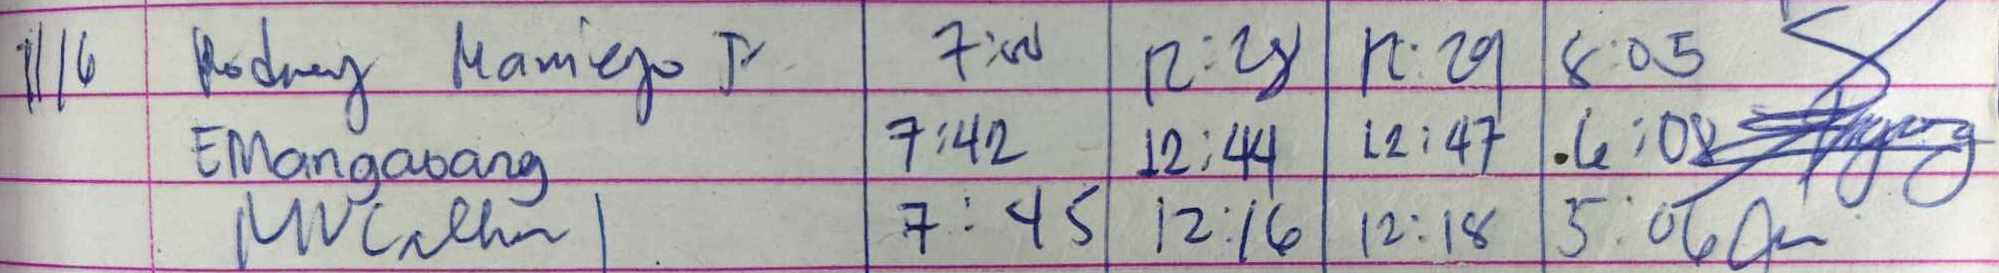 1/16 Rodney Maniego Jr 7:00 12:28 12:29 8:05
EMangaoang 7:42 12:44 12:47 6:08
7:45 12:16 12:18 5:06